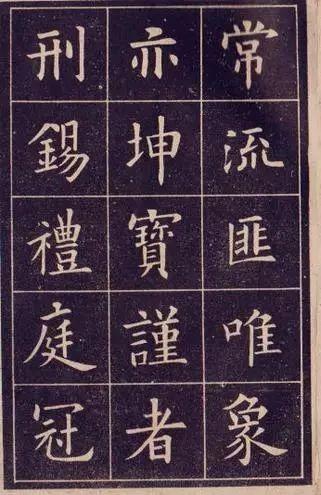 常流匪唯象
亦坤寶謹者
刑錫禮庭冠